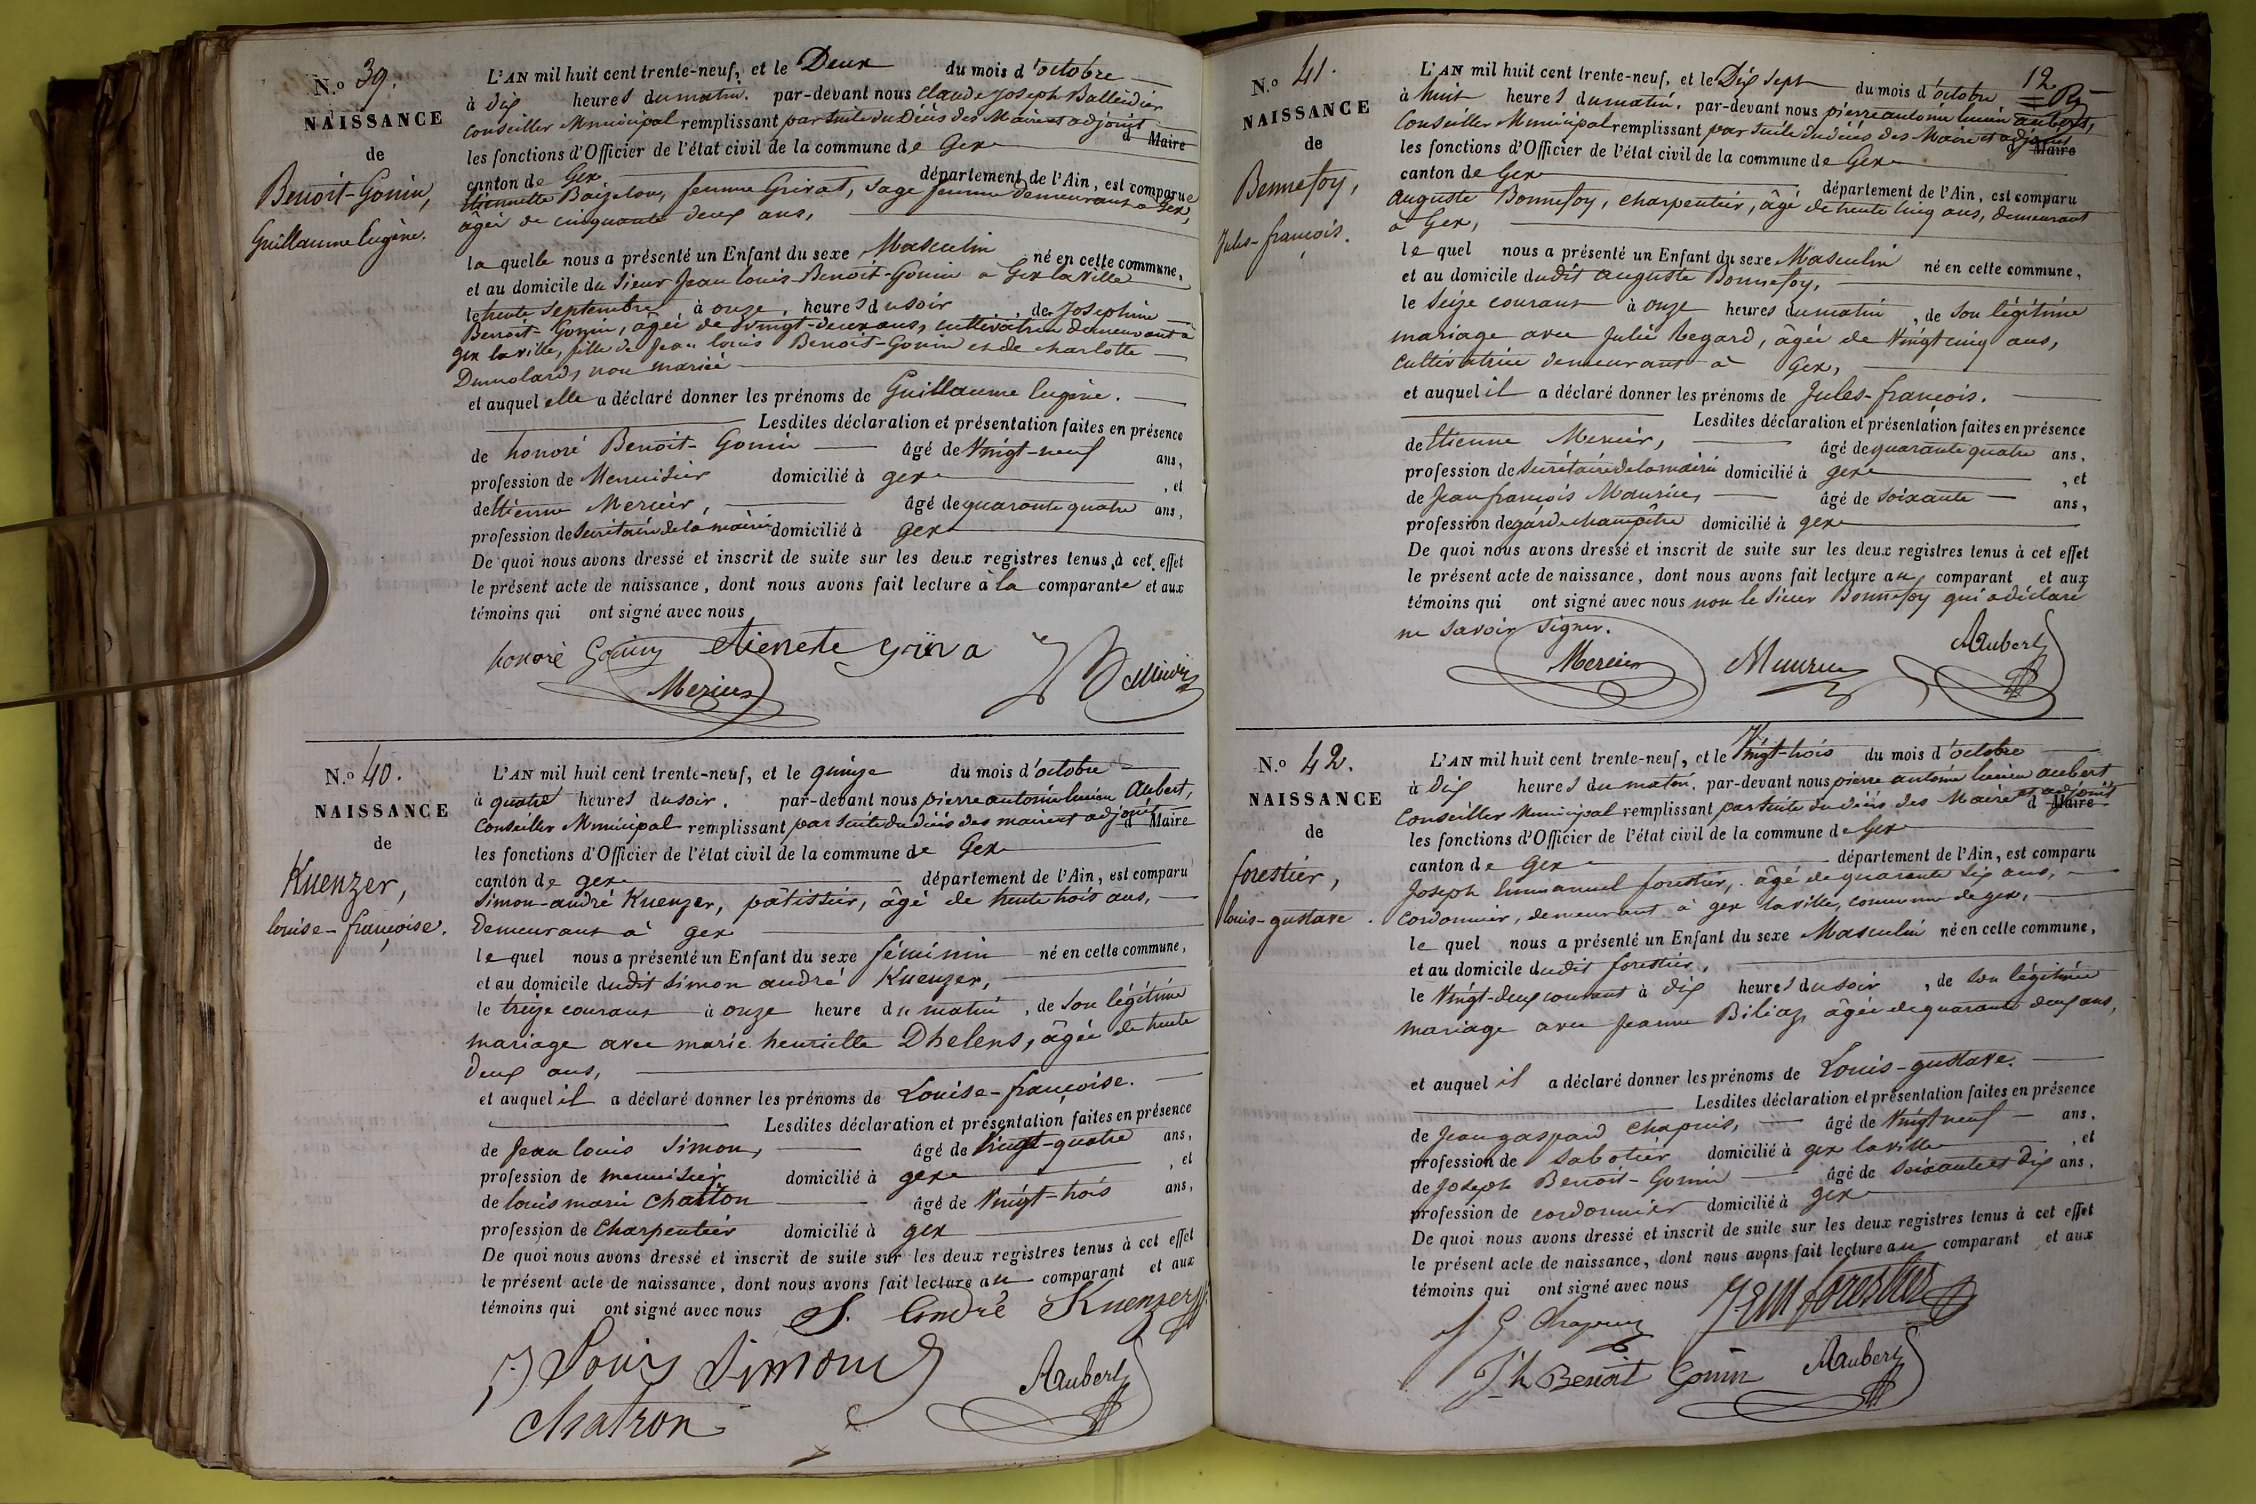 N.º 39.
NAISSANCE
de
Benoit-Gonin,
Guillaume Eugène.
L'AN mil huit cent trente-neuf, et le Deux du mois d'octobre
à dix heures du matin. par-devant nous Claude Joseph Balleidier
Conseiller Municipal remplissant par suite du Décès des Maire et adjoint d Maire
les fonctions d'Officier de l'état civil de la commune de Gex
canton de Gex département de l'Ain, est comparue
Etiennette femme Grivat, Sage femme demeurant à Gex,
âgée de cinquante deux ans,
la quelle nous a présenté un Enfant du sexe Masculin né en cette commune,
et au domicile du Sieur Jean Louis Benoit-Gonin à Gex la Ville
le trente Septembre à onze heures du soir, de Joséphine
Benoit-Gonin, âgée de vingt-deux ans, cultivatrice demeurant à
Gex la ville, fille de Jean Louis Benoit-Gonin et de charlotte
Dumolard, non mariée
et auquel elle a déclaré donner les prénoms de Guillaume Eugène.
Lesdites déclaration et présentation faites en présence
de honoré Benoit-Gonin âgé de Vingt-neuf ans,
profession de Menuisier domicilié à gex , et
de Etienne Mercier, âgé de quarante quatre ans,
profession de Secrétaire de la mairie domicilié à gex
De quoi nous avons dressé et inscrit de suite sur les deux registres tenus à cet effet
le présent acte de naissance, dont nous avons fait lecture à la comparante et aux
témoins qui ont signé avec nous
honoré Gonin Etienette Griva
Mercier
N.º 40.
NAISSANCE
de
Kuenzer,
louise-françoise.
L'AN mil huit cent trente-neuf, et le quinze du mois d'octobre
à quatre heures du soir. par-devant nous pierre antoine lucien Aubert,
Conseiller Municipal remplissant par suite du décès des maire et adjoint d Maire
les fonctions d'Officier de l'état civil de la commune de Gex
canton de gex département de l'Ain, est comparu
Simon-andré Kuenzer, pâtissier, âgé de trente trois ans,
demeurant à gex
le quel nous a présenté un Enfant du sexe féminin né en cette commune,
et au domicile dudit Simon andré Kuenzer,
le treize courant à onze heure du matin, de son légitime
mariage avec marie henriette Dhelens, âgée de trente
deux ans,
et auquel il a déclaré donner les prénoms de Louise-françoise.
Lesdites déclaration et présentation faites en présence
de Jean louis Simon, âgé de Vingt-quatre ans,
profession de menuisier domicilié à gex , et
de louis marie Chatron âgé de Vingt-trois ans,
profession de Charpentier domicilié à gex
De quoi nous avons dressé et inscrit de suite sur les deux registres tenus à cet effet
le présent acte de naissance, dont nous avons fait lecture au comparant et aux
témoins qui ont signé avec nous S. André Kuenzer
J Louis Simon
Aubert
Chatron
12
N.º 41.
NAISSANCE
de
Bonnefoy,
Jules-françois.
L'AN mil huit cent trente-neuf, et le Dix sept du mois d'octobre
à huit heures du matin. par-devant nous pierre antoine lucien aubert,
Conseiller Municipal remplissant par suite du décès des Maire et adjoint d Maire
les fonctions d'Officier de l'état civil de la commune de Gex
canton de Gex département de l'Ain, est comparu
auguste Bonnefoy, charpentier, âgé de trente cinq ans, demeurant
à Gex,
le quel nous a présenté un Enfant du sexe Masculin né en cette commune,
et au domicile dudit auguste Bonnefoy,
le Seize courant à onze heures du matin, de son légitime
mariage avec Julie Regard, âgée de Vingt cinq ans,
cultivatrice demeurant à Gex,
et auquel il a déclaré donner les prénoms de Jules-françois.
Lesdites déclaration et présentation faites en présence
de Etienne Mercier, âgé de quarante quatre ans,
profession de Secrétaire de la mairie domicilié à gex , et
de Jean françois Maurice, âgé de soixante ans,
profession de garde champêtre domicilié à gex
De quoi nous avons dressé et inscrit de suite sur les deux registres tenus à cet effet
le présent acte de naissance, dont nous avons fait lecture au comparant et aux
témoins qui ont signé avec nous non le sieur Bonnefoy qui a déclaré
ne savoir signer.
Mercier Maurice Aubert
N.º 42.
NAISSANCE
de
forestier,
louis-gustave.
L'AN mil huit cent trente-neuf, et le Vingt-trois du mois d'octobre
à dix heures du matin. par-devant nous pierre antoine lucien aubert
Conseiller Municipal remplissant par suite du décès des Maire et adjoint d Maire
les fonctions d'Officier de l'état civil de la commune de Gex
canton de Gex département de l'Ain, est comparu
Joseph Emmanuel forestier, âgé de quarante six ans,
Cordonnier, demeurant à gex la ville, commune de gex,
le quel nous a présenté un Enfant du sexe Masculin né en cette commune,
et au domicile dudit forestier,
le Vingt-deux courant à dix heures du soir, de son légitime
mariage avec Jeanne Biliaz, âgée de quarante deux ans,
et auquel il a déclaré donner les prénoms de Louis-gustave.
Lesdites déclaration et présentation faites en présence
de Jean gaspard Chapuis, âgé de Vingt neuf ans,
profession de sabotier domicilié à gex la ville , et
de Joseph Benoit-Gonin âgé de soixante et dix ans,
profession de cordonnier domicilié à gex
De quoi nous avons dressé et inscrit de suite sur les deux registres tenus à cet effet
le présent acte de naissance, dont nous avons fait lecture au comparant et aux
témoins qui ont signé avec nous
J G Chapuis J. EM forestier
Jh Benoit Gonin Aubert